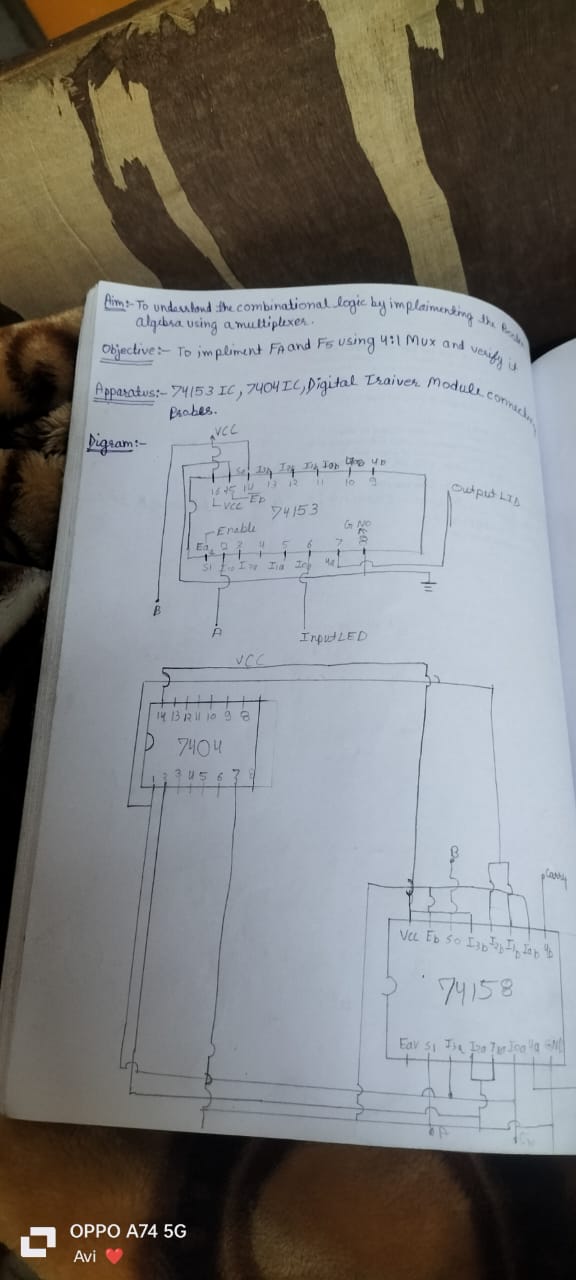 Aim:- To understand the combinational logic by implaimenting the
algebra using a multiplexer.
Objective:- To impliment FA and FS using 4:1 Mux and verify it
Apparatus:- 74153 IC, 7404 IC, Digital Traiver Module connecting
Probes.
Digram:-
VCC
S0 I3b I2b I1b I0b Yb
16 15 14 13 12 11 10 9
VCC Eb
74153
Output LED
Enable
GND
Ea 2 3 4 5 6 7 8
S1 I3a I2a I1a I0a Ya
B
A
Input LED
VCC
14 13 12 11 10 9 8
7404
1 2 3 4 5 6 7 8
B
Carry
VCC Eb S0 I3b I2b I1b I0b Yb
74158
Ea S1 I3a I2a I1a I0a Ya GND
A
OPPO A74 5G
Avi ❤️